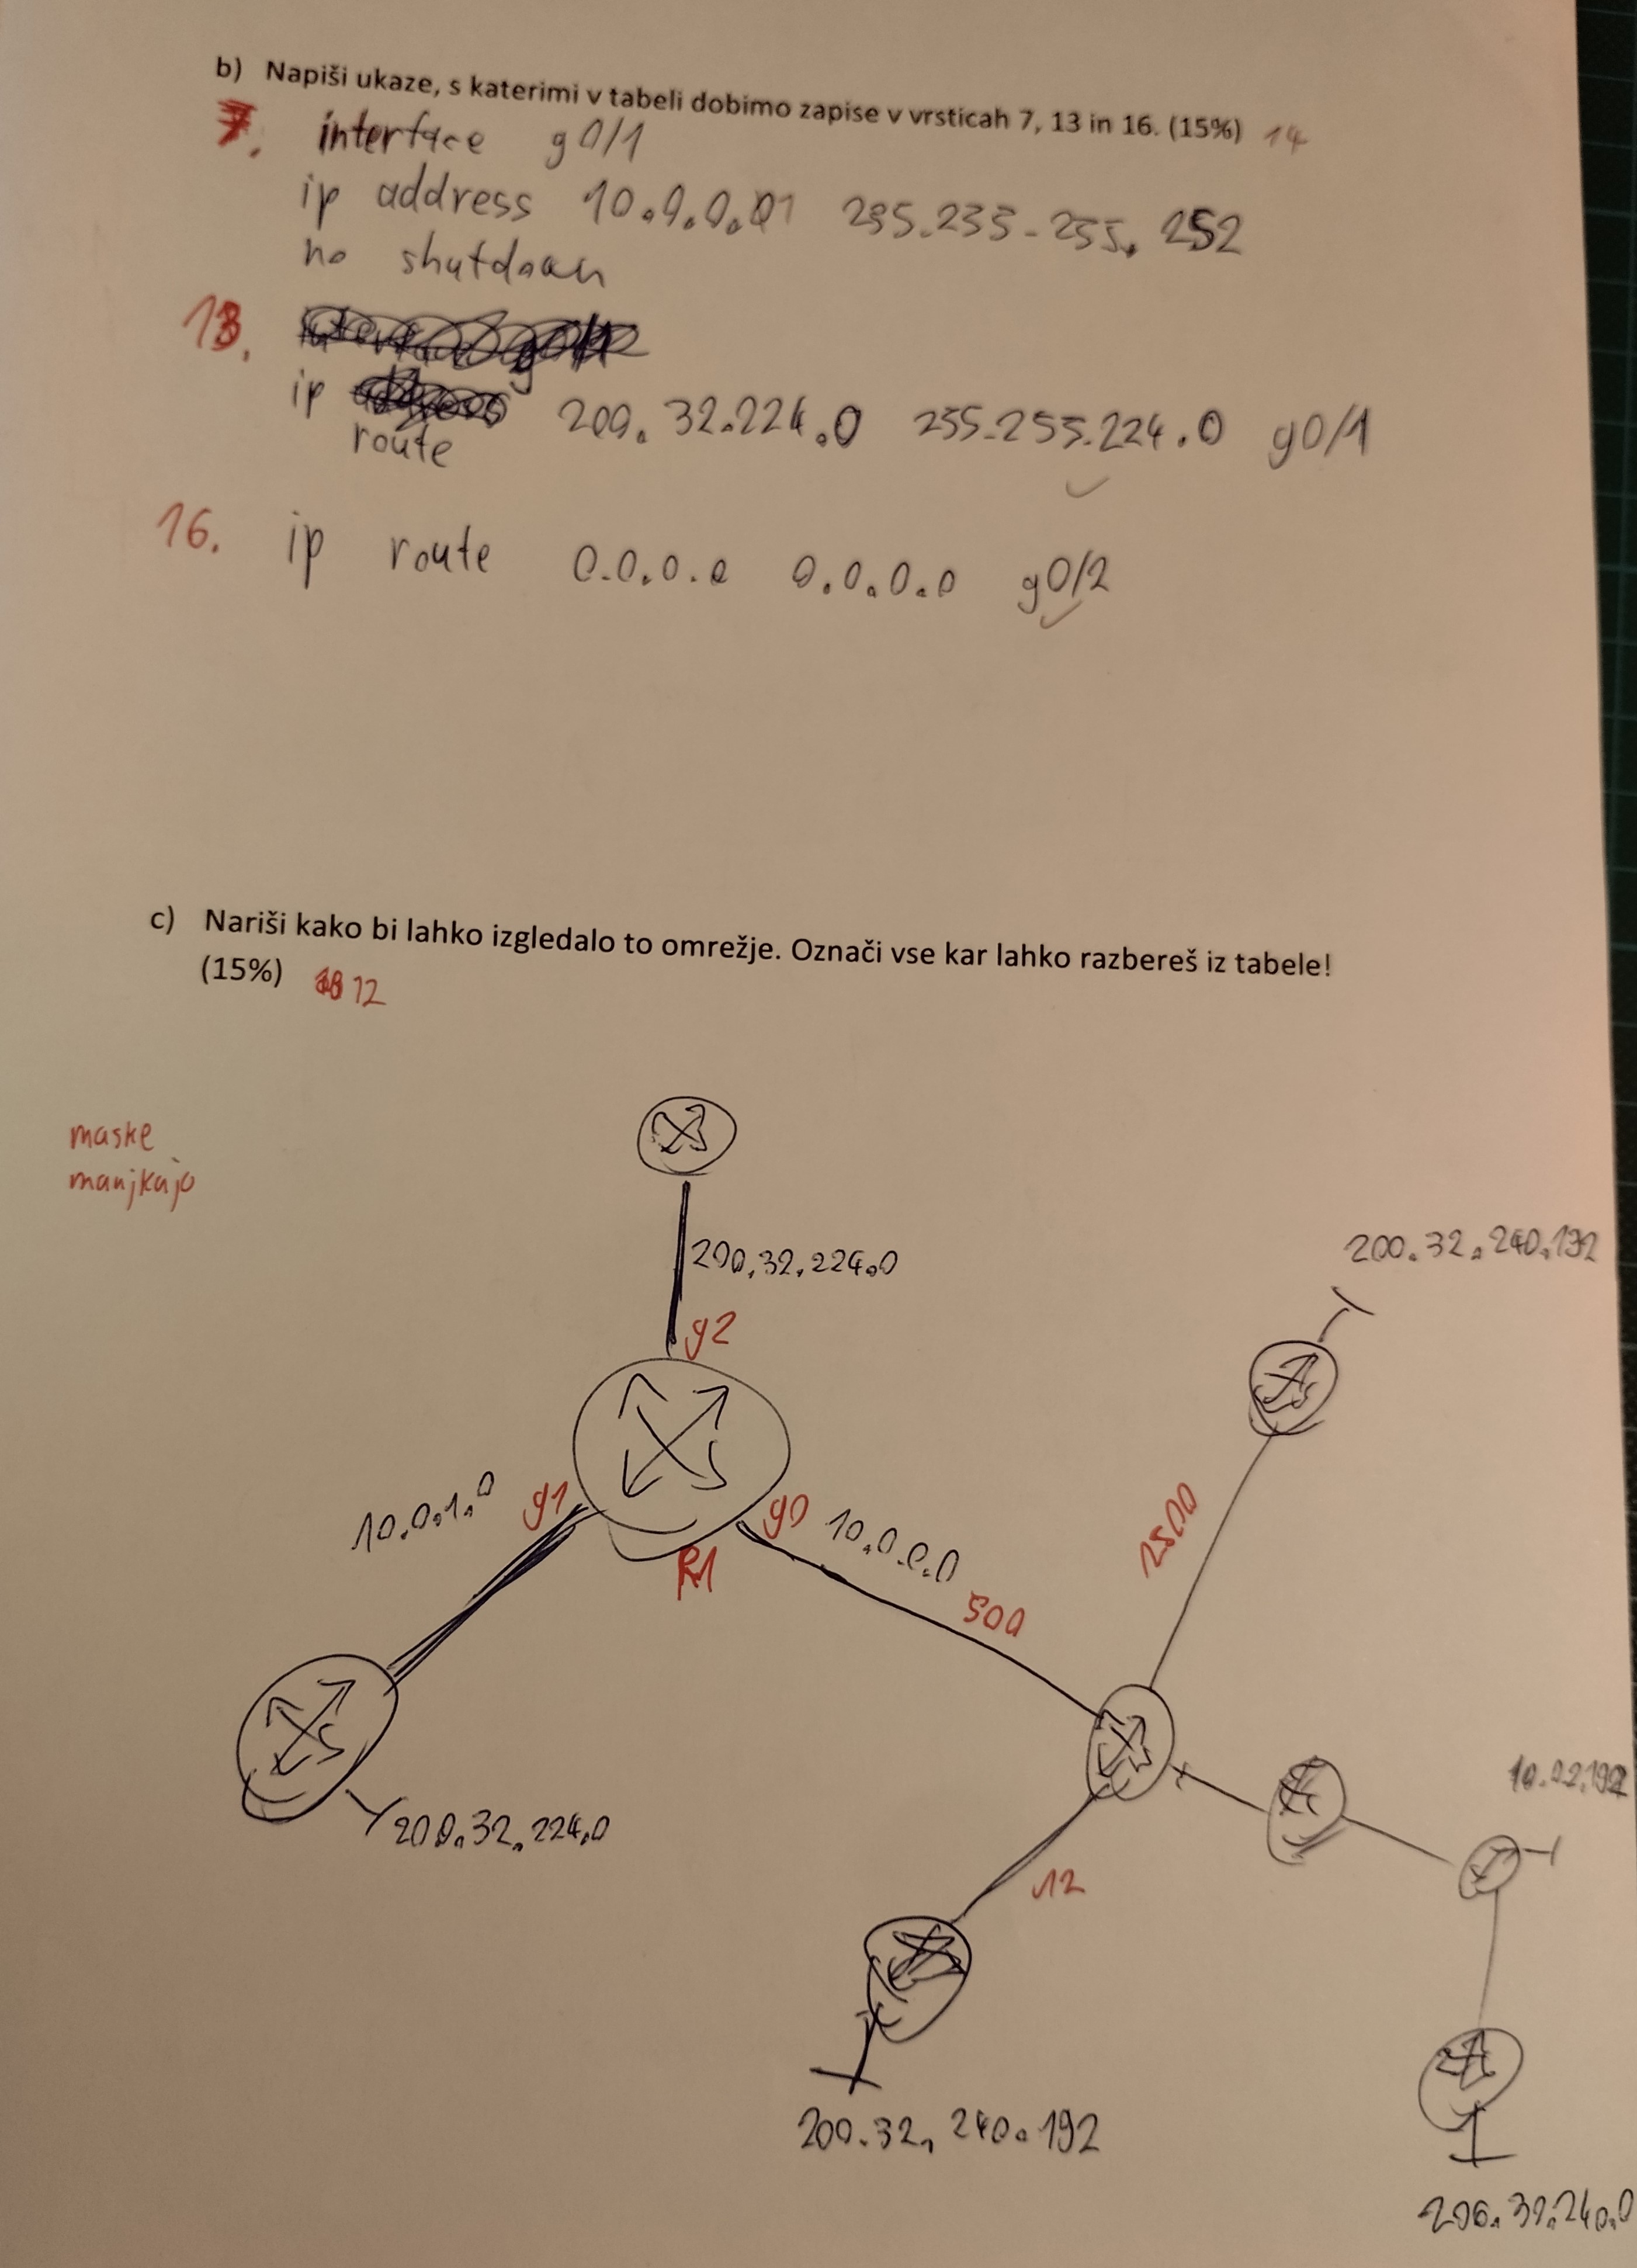 b) Napiši ukaze, s katerimi v tabeli dobimo zapise v vrsticah 7, 13 in 16. (15%) 14
7. interface g0/1
ip address 10.0.0.1 255.255.255.252
no shutdown
13.
ip route 200.32.224.0 255.255.224.0 g0/1
16. ip route 0.0.0.0 0.0.0.0 g0/2
c) Nariši kako bi lahko izgledalo to omrežje. Označi vse kar lahko razbereš iz tabele!
(15%) 12
maske
manjkajo
200.32.224.0
200.32.240.192
g2
10.0.1.0 g1
g0 10.0.0.0
2500
R1
500
200.32.224.0
12
200.32.240.192
206.32.240.0